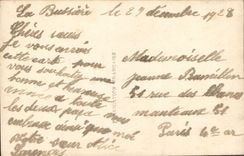 La Bussière le 27 décembre 1928
Chères amies
Je vous envois
cette carte pour
vous souhaiter une
bonne et heureuse
année a toute
les deux papa vous
embrasse ainsi que moi
votre sœur Alice
Mademoiselle
Jeanne
51 rue des
manteaux 51
Paris 4e ar